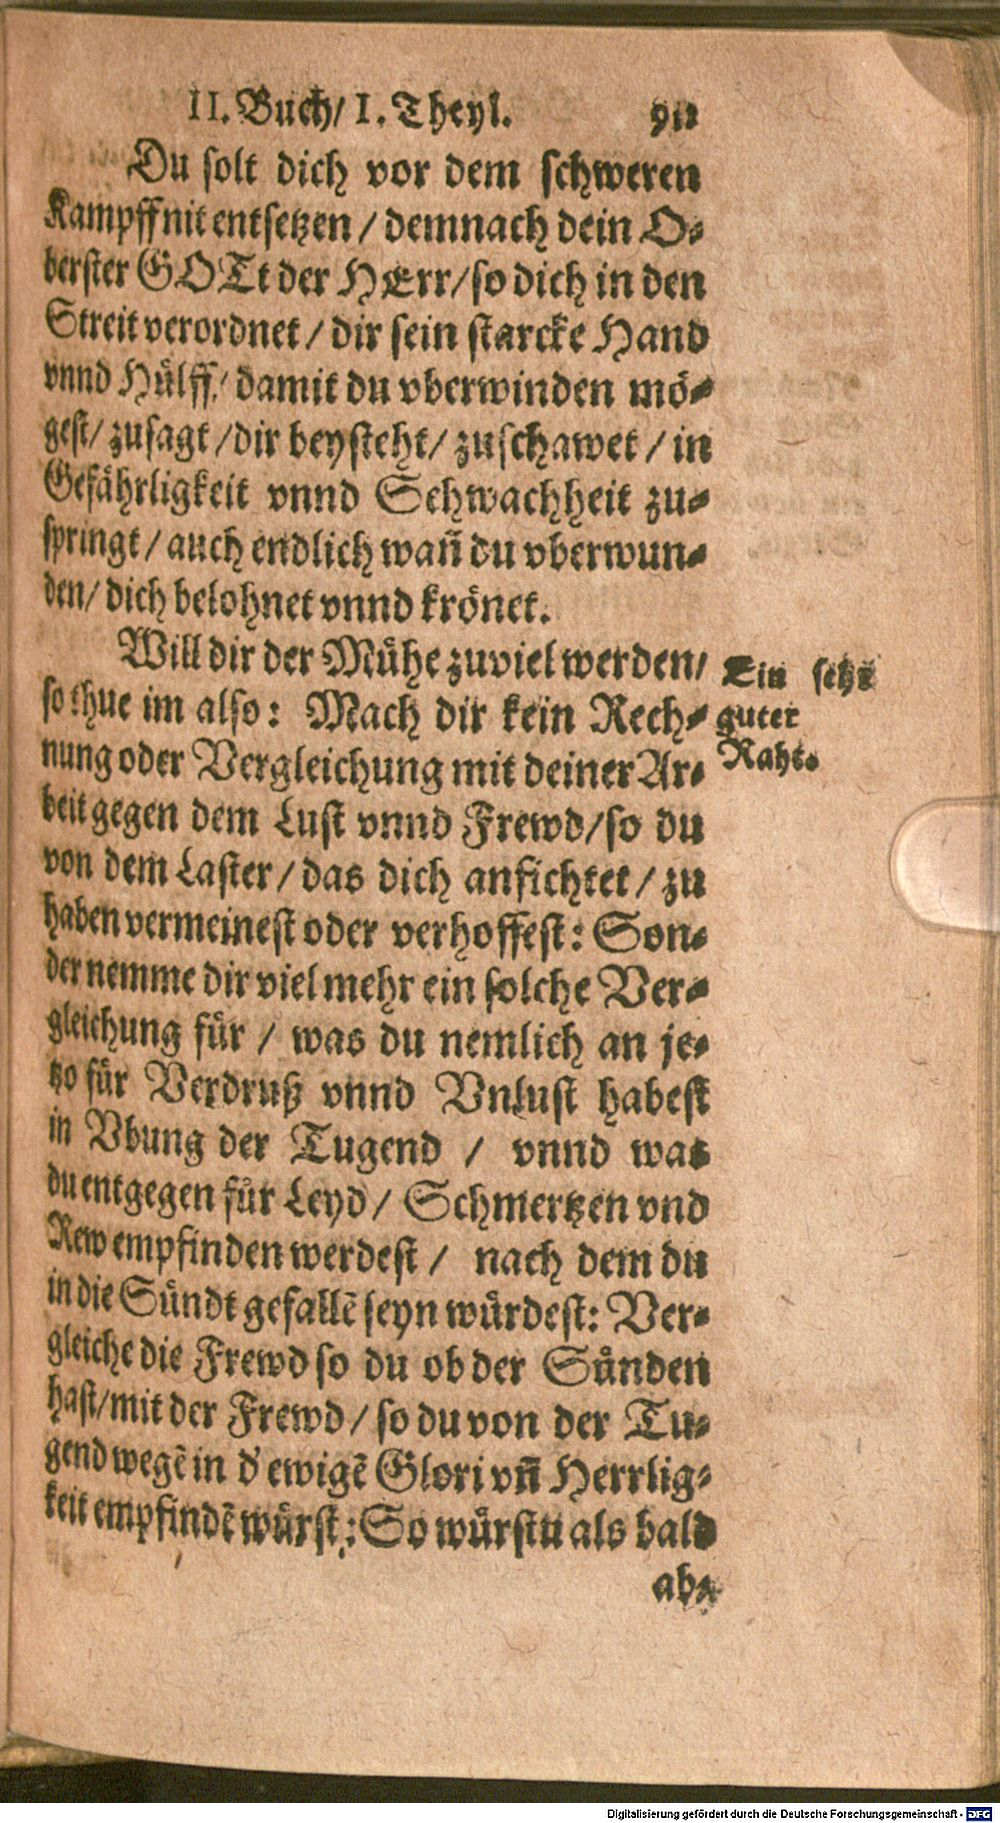 II. Buch/ I. Theyl.
Du solt dich vor dem schweren
Kampff nit entsetzen / demnach dein O-
berster GOTt der HErr/ so dich in den
Streit verordnet / dir sein starcke Hand
vnnd Hülff/ damit du vberwinden mö-
gest/ zusagt / dir beysteht/ zuschawet / in
Gefährligkeit vnnd Schwachheit zu-
springt / auch endlich wañ du vberwun-
den/ dich belohnet vnnd krönet.
Will dir der Mühe zuviel werden/
so thue im also: Mach dir kein Rech-
nung oder Vergleichung mit deiner Ar-
beit gegen dem Lust vnnd Frewd/ so du
von dem Laster / das dich anfichtet / zu
haben vermeinest oder verhoffest: Son-
der nemme dir viel mehr ein solche Ver-
gleichung für / was du nemlich an je-
tzo für Verdruß vnnd Vnlust habest
in Vbung der Tugend / vnnd was
du entgegen für Leyd / Schmertzen vnd
Rew empfinden werdest / nach dem du
in die Sündt gefallē seyn würdest: Ver-
gleiche die Frewd so du ob der Sünden
hast/ mit der Frewd / so du von der Tu-
gend wegē in d' ewigē Glori vñ Herrlig-
keit empfindē würst: So würstu als bald
ab-
Ein sehr
guter
Raht.
Digitalisierung gefördert durch die Deutsche Forschungsgemeinschaft - DFG